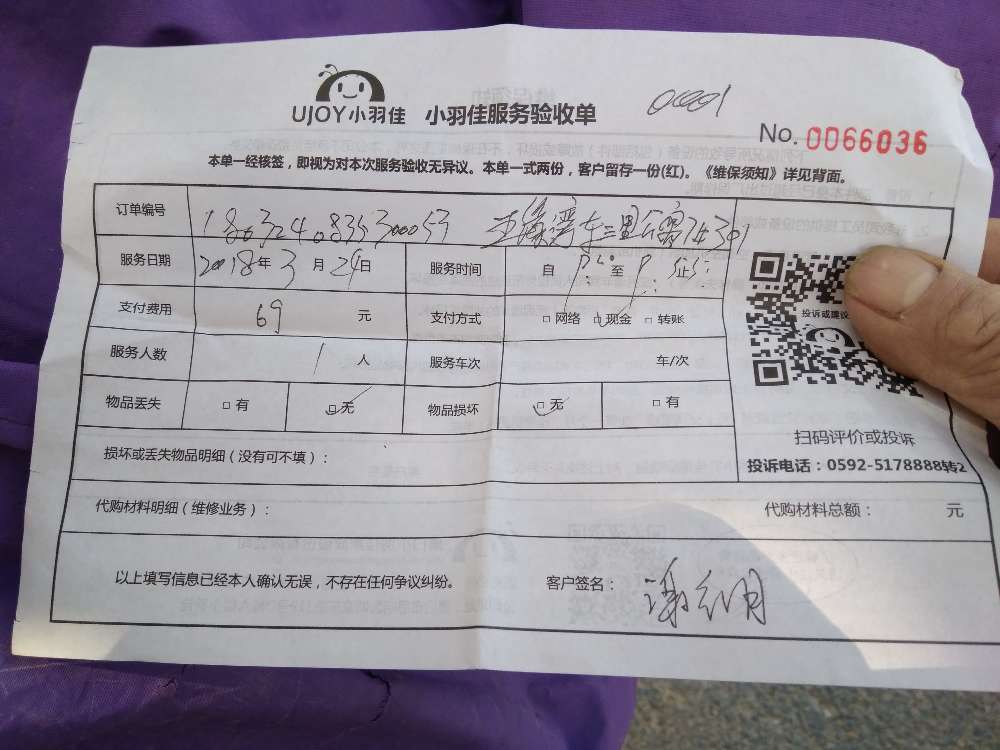 UJOY小羽佳 小羽佳服务验收单
No. 0066036
本单一经核签，即视为对本次服务验收无异议。本单一式两份，客户留存一份(红)。《维保须知》详见背面。
订单编号
服务日期 2018年3月24日 服务时间 自 至
支付费用 69 元 支付方式 □网络 □现金 □转账
服务人数 1 人 服务车次 车/次
物品丢失 □有 □无 物品损坏 □无 □有
投诉或建议
扫码评价或投诉
投诉电话：0592-5178888转2
损坏或丢失物品明细（没有可不填）：
代购材料明细（维修业务）： 代购材料总额： 元
以上填写信息已经本人确认无误，不存在任何争议纠纷。 客户签名：